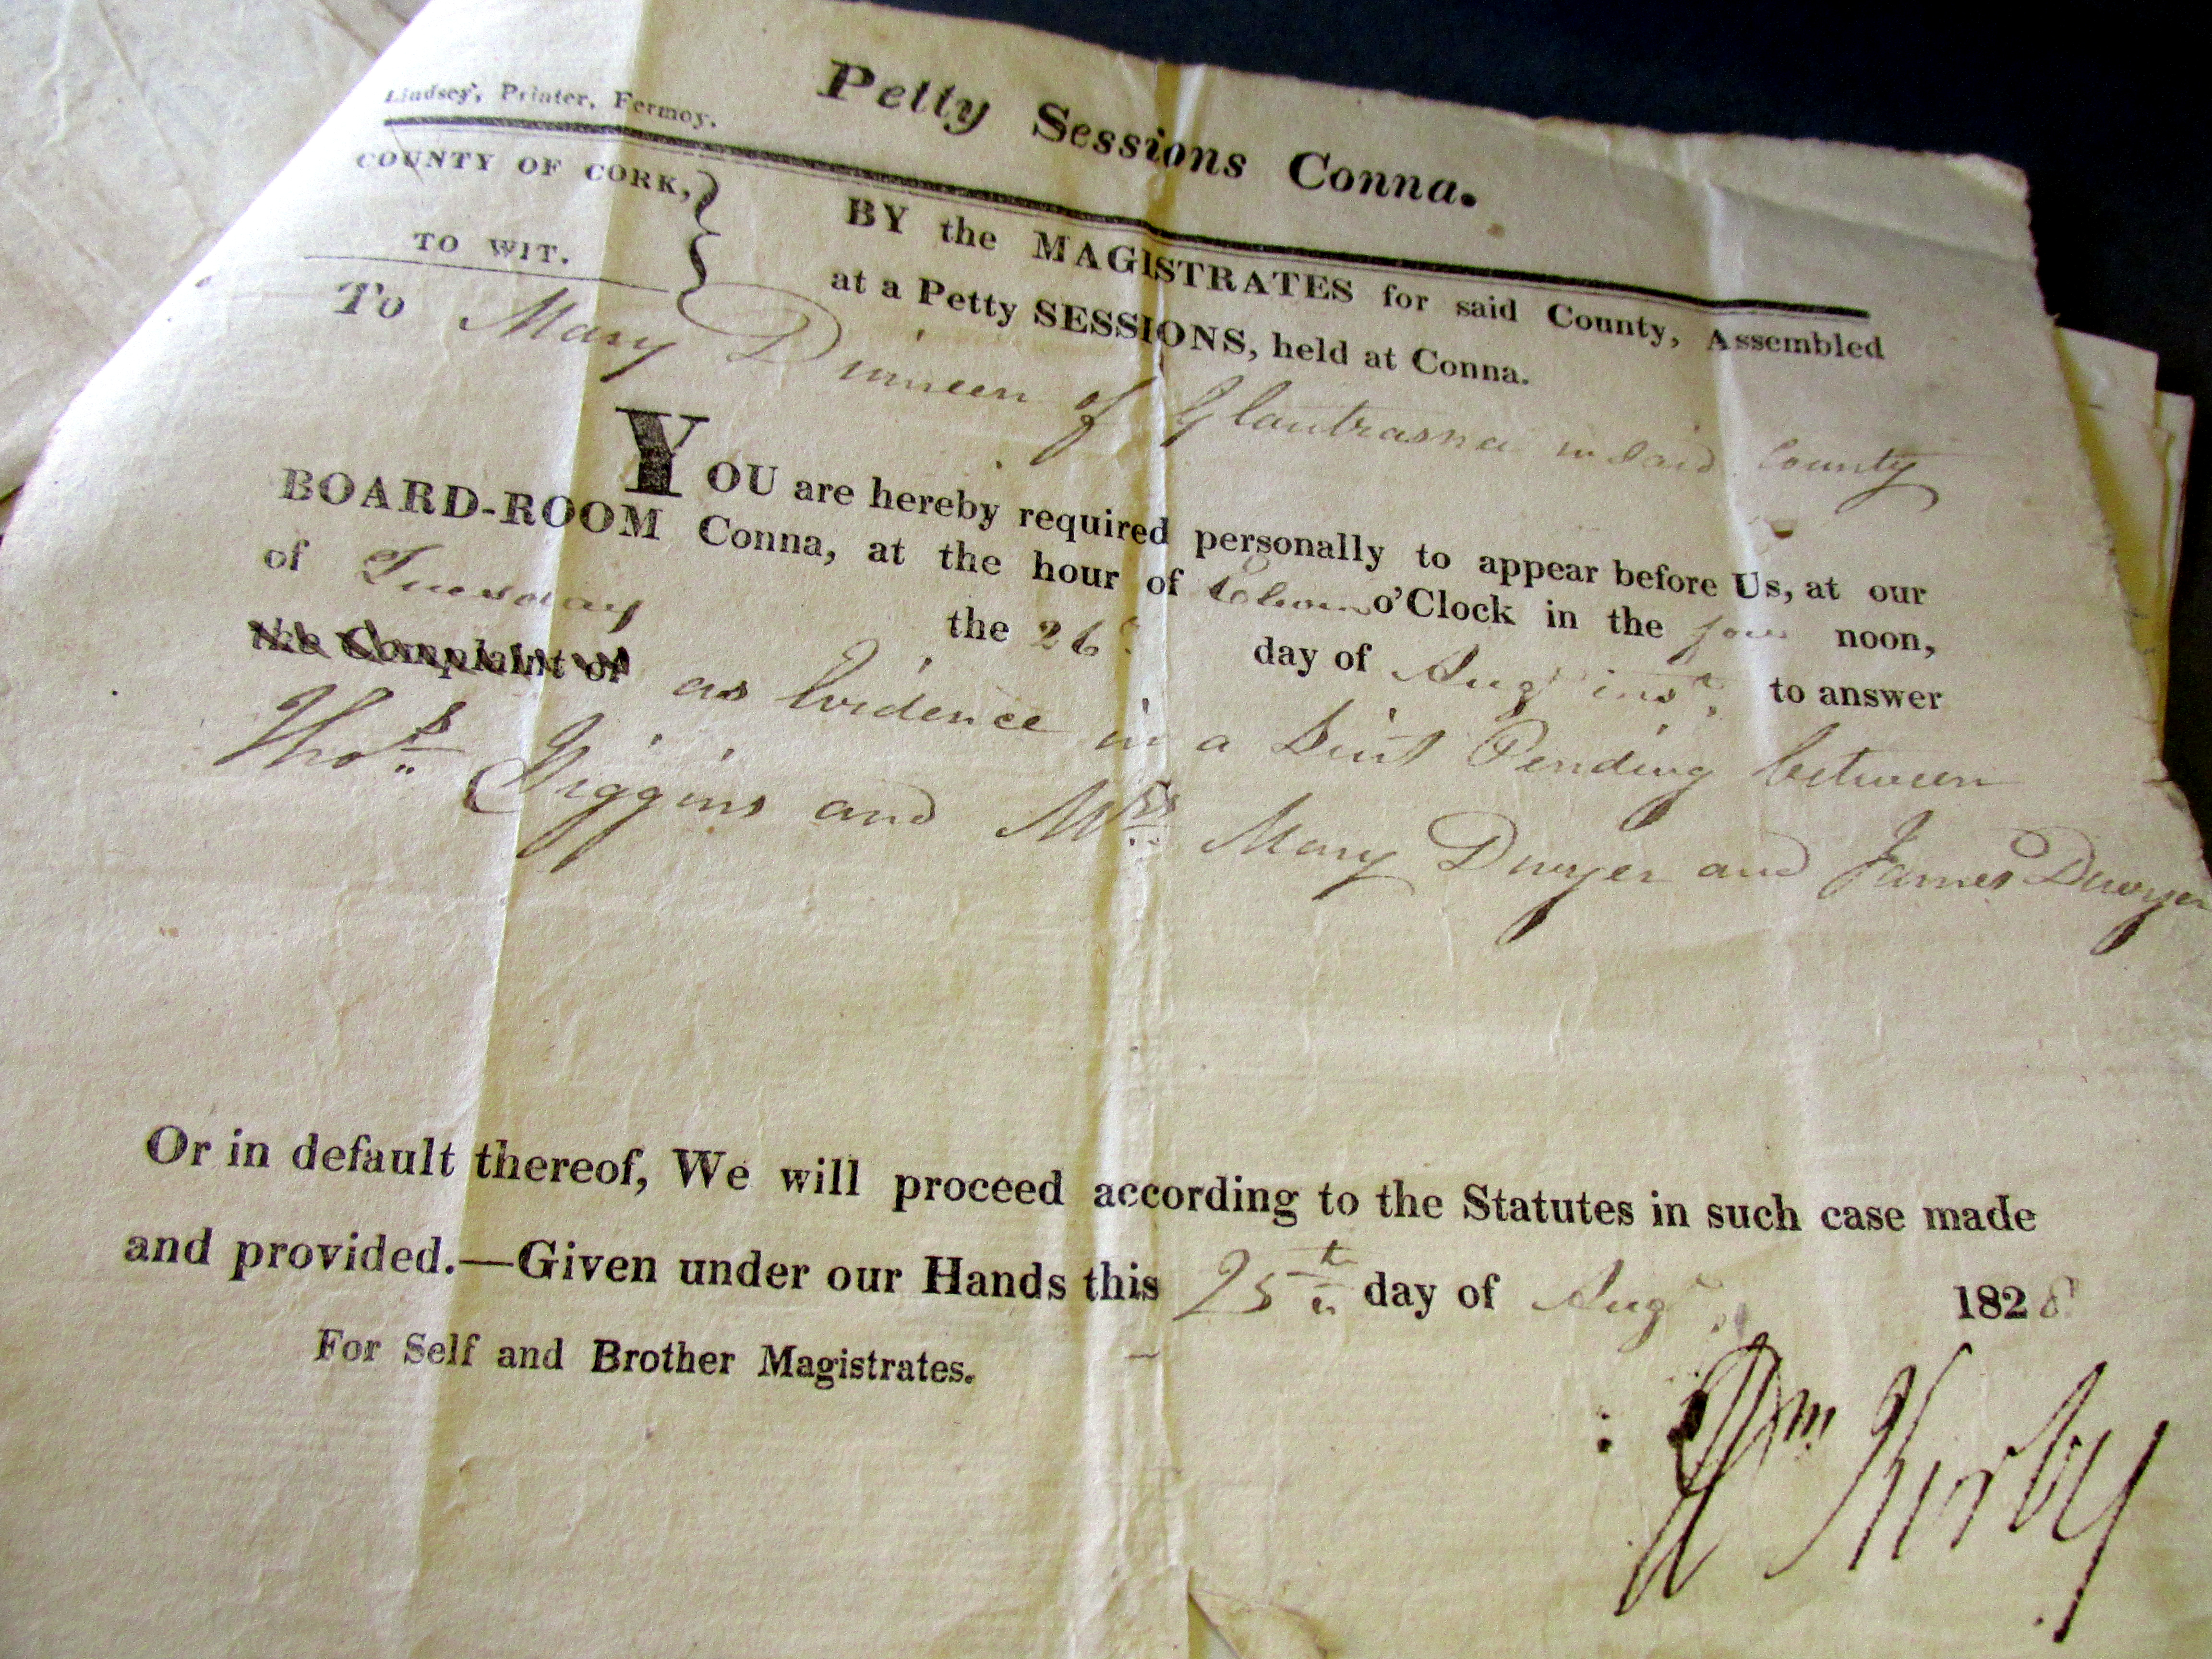 Lindsey, Printer, Fermoy.
Petty Sessions Conna.
COUNTY OF CORK,
TO WIT.
BY the MAGISTRATES for said County, Assembled
at a Petty SESSIONS, held at Conna.
To Mary Dinneen of Glantrasna in Said County
YOU are hereby required personally to appear before Us, at our
BOARD-ROOM Conna, at the hour of Eleven o'Clock in the fore noon,
of Tuesday the 26 day of Augt inst to answer
the Complaint of as Evidence in a Suit Pending between
Thos Higgins and Mrs Mary Dwyer and James Dwyer
Or in default thereof, We will proceed according to the Statutes in such case made
and provided.—Given under our Hands this 25th day of Augt 1828
For Self and Brother Magistrates.
Wm Kirby